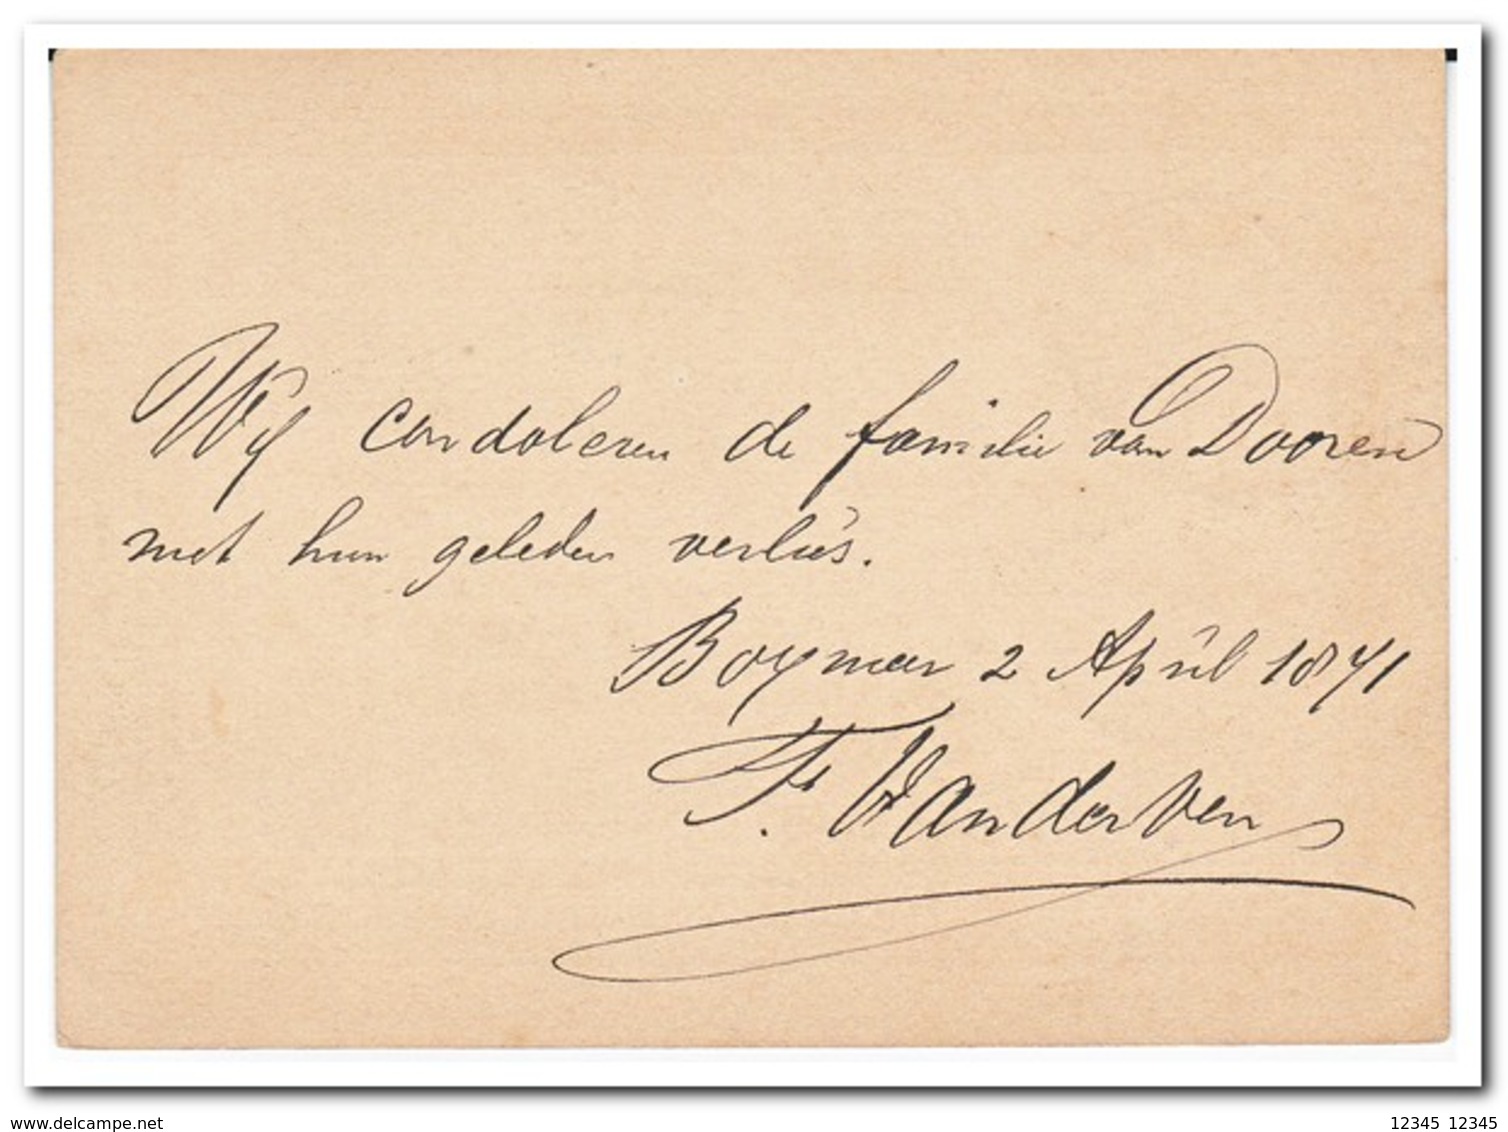 Wij condoleren de familie van Dooren
met hun geleden verlies.
Boxmeer 2 April 1871
F. Vanderven
www.delcampe.net
12345_12345